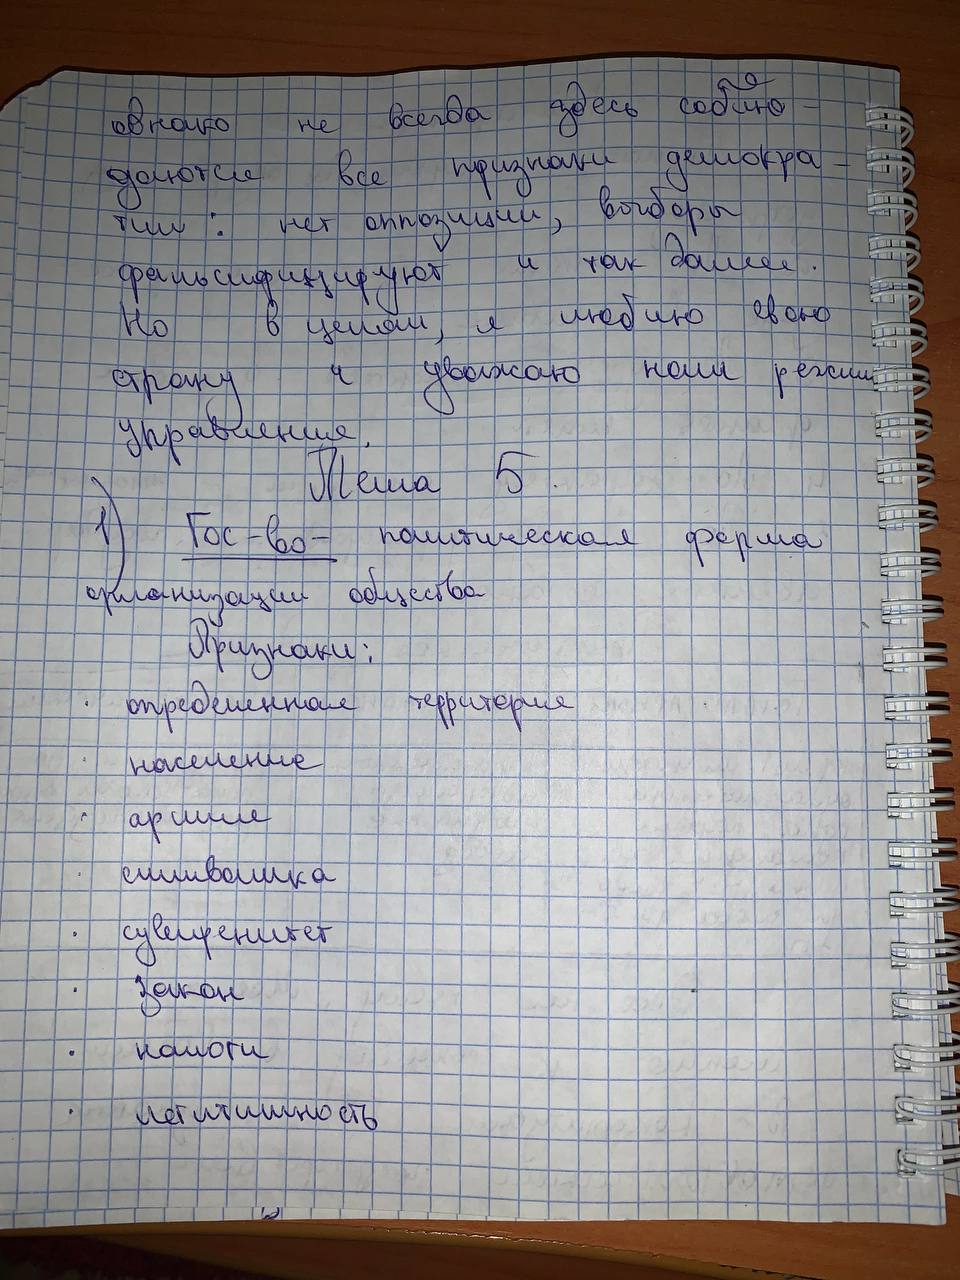 однако не всегда здесь соблю-
даются все признаки демокра-
тии: нет оппозиции, выборы
фальсифицируют и так далее.
Но в целом, я люблю свою
страну и уважаю наш режим
управления.
Тема 5.
1) Гос-во- политическая форма
организации общества
Признаки:
· определенная территория
· население
· армия
· символика
· суверенитет
· закон
· налоги
· легитимность